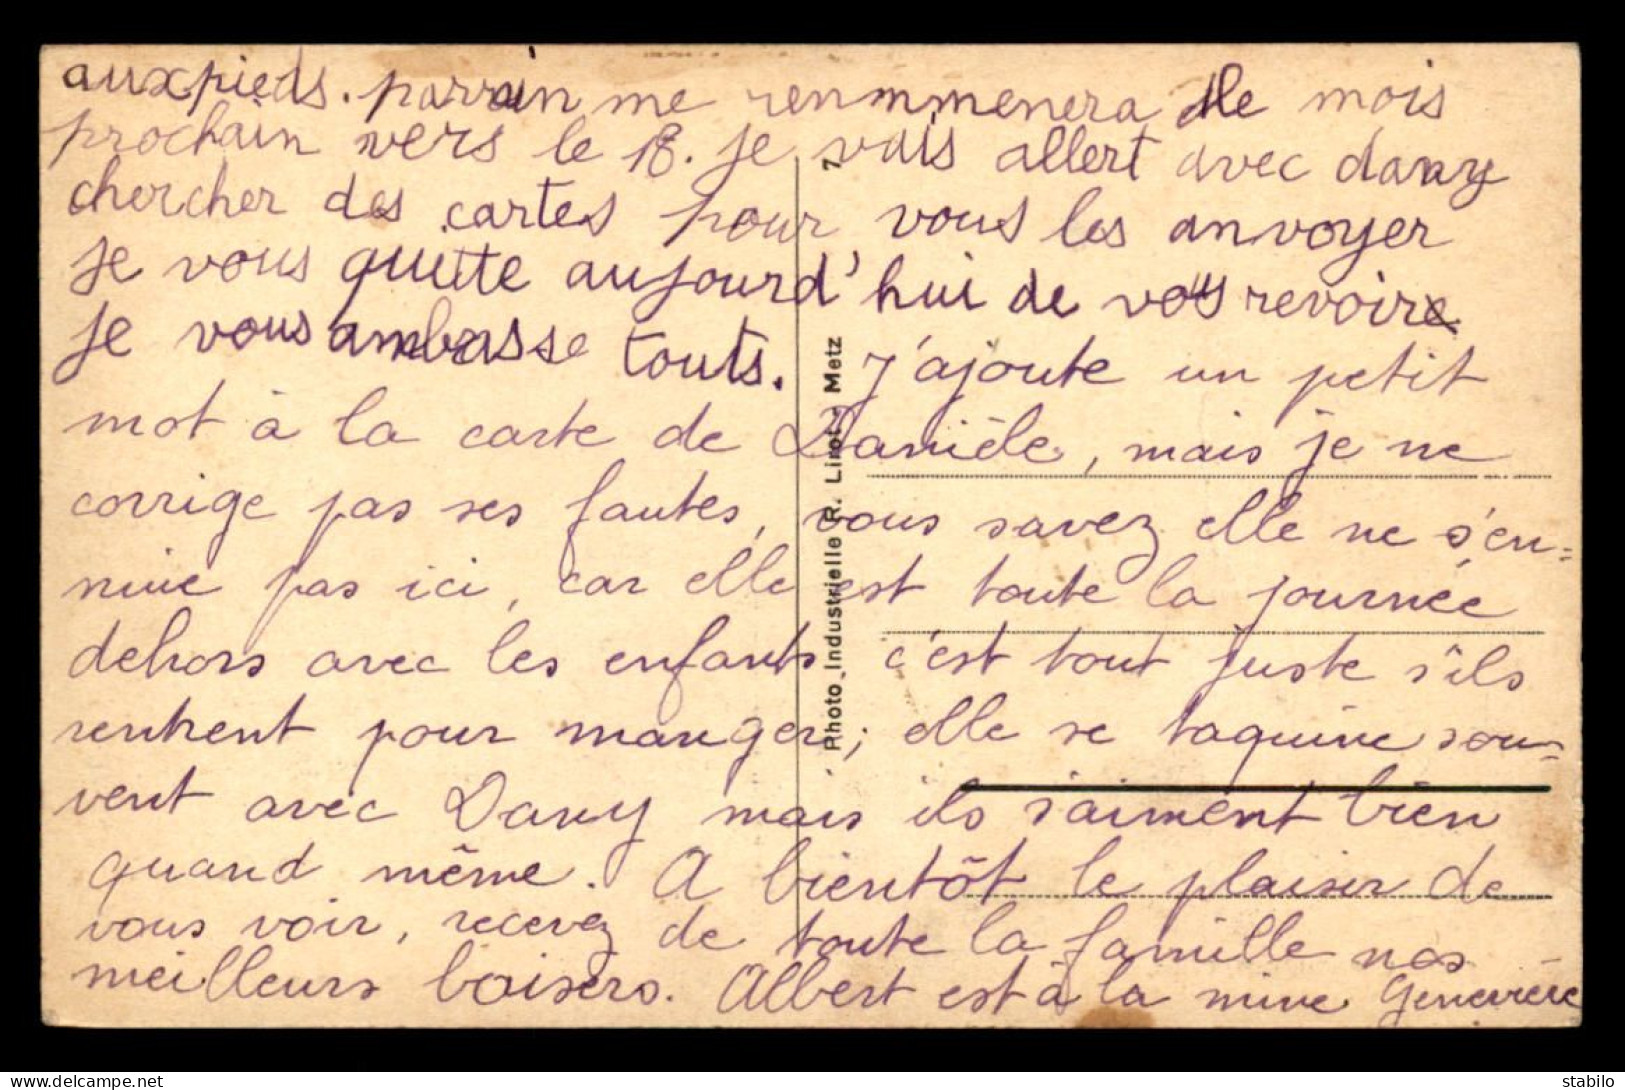 auxpieds. parrain me renmmenera le mois
prochain vers le 18. je vais allert avec dany
chercher des cartes pour vous les anvoyer
je vous quitte aujourd'hui de vous revoire
je vous ambrasse touts. J'ajoute un petit
mot à la carte de Danièle, mais je ne
corrige pas ses fautes, vous savez elle ne s'en=
nuie pas ici, car elle est toute la journée
dehors avec les enfants c'est tout juste s'ils
rentrent pour manger; elle se taquine sou=
vent avec Dany mais ils s'aiment bien
quand même. A bientôt le plaisir de
vous voir, recevez de toute la famille nos
meilleurs baisers. Albert est à la mine Geneviève
Photo Industrielle R. Lirot - Metz 7
delcampe.net
stabilo